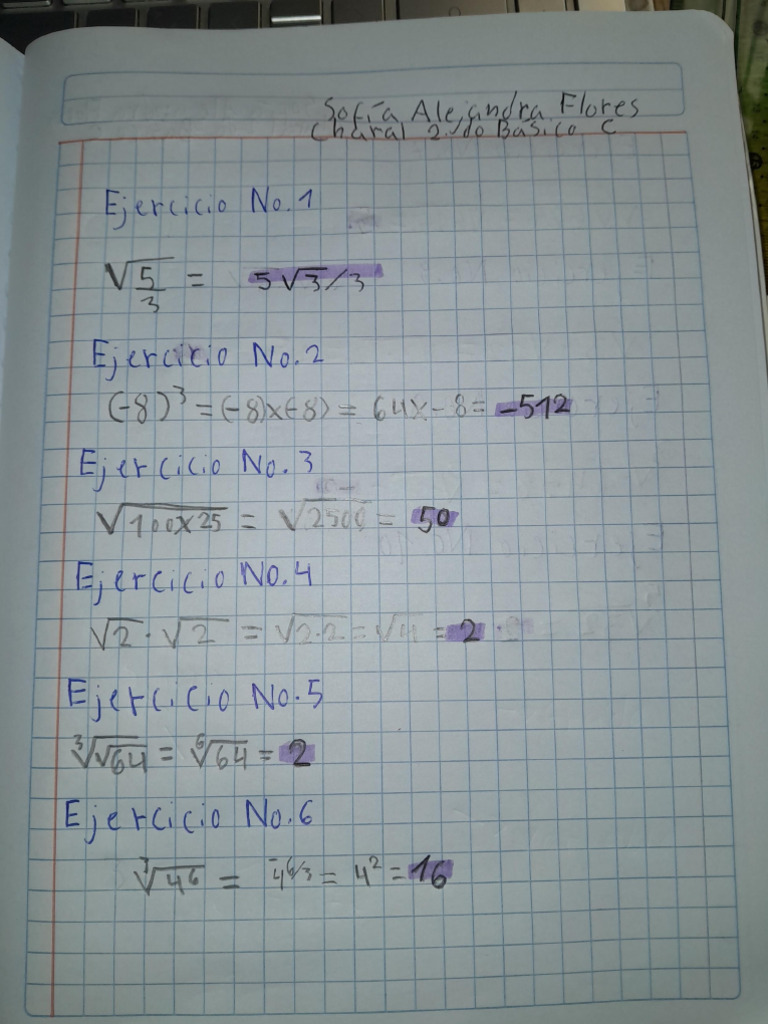 Sofía Alejandra Flores
Charal 2.do Basico C
Ejercicio No.1
√5/3 = 5√3/3
Ejercicio No.2
(-8)³ = (-8)x(-8) = 64x-8= -512
Ejercicio No.3
√100x25 = √2500 = 50
Ejercicio No.4
√2 · √2 = √2·2 = √4 = 2
Ejercicio No.5
³√√64 = ⁶√64 = 2
Ejercicio No.6
³√4⁶ = 4^6/3 = 4² = 16